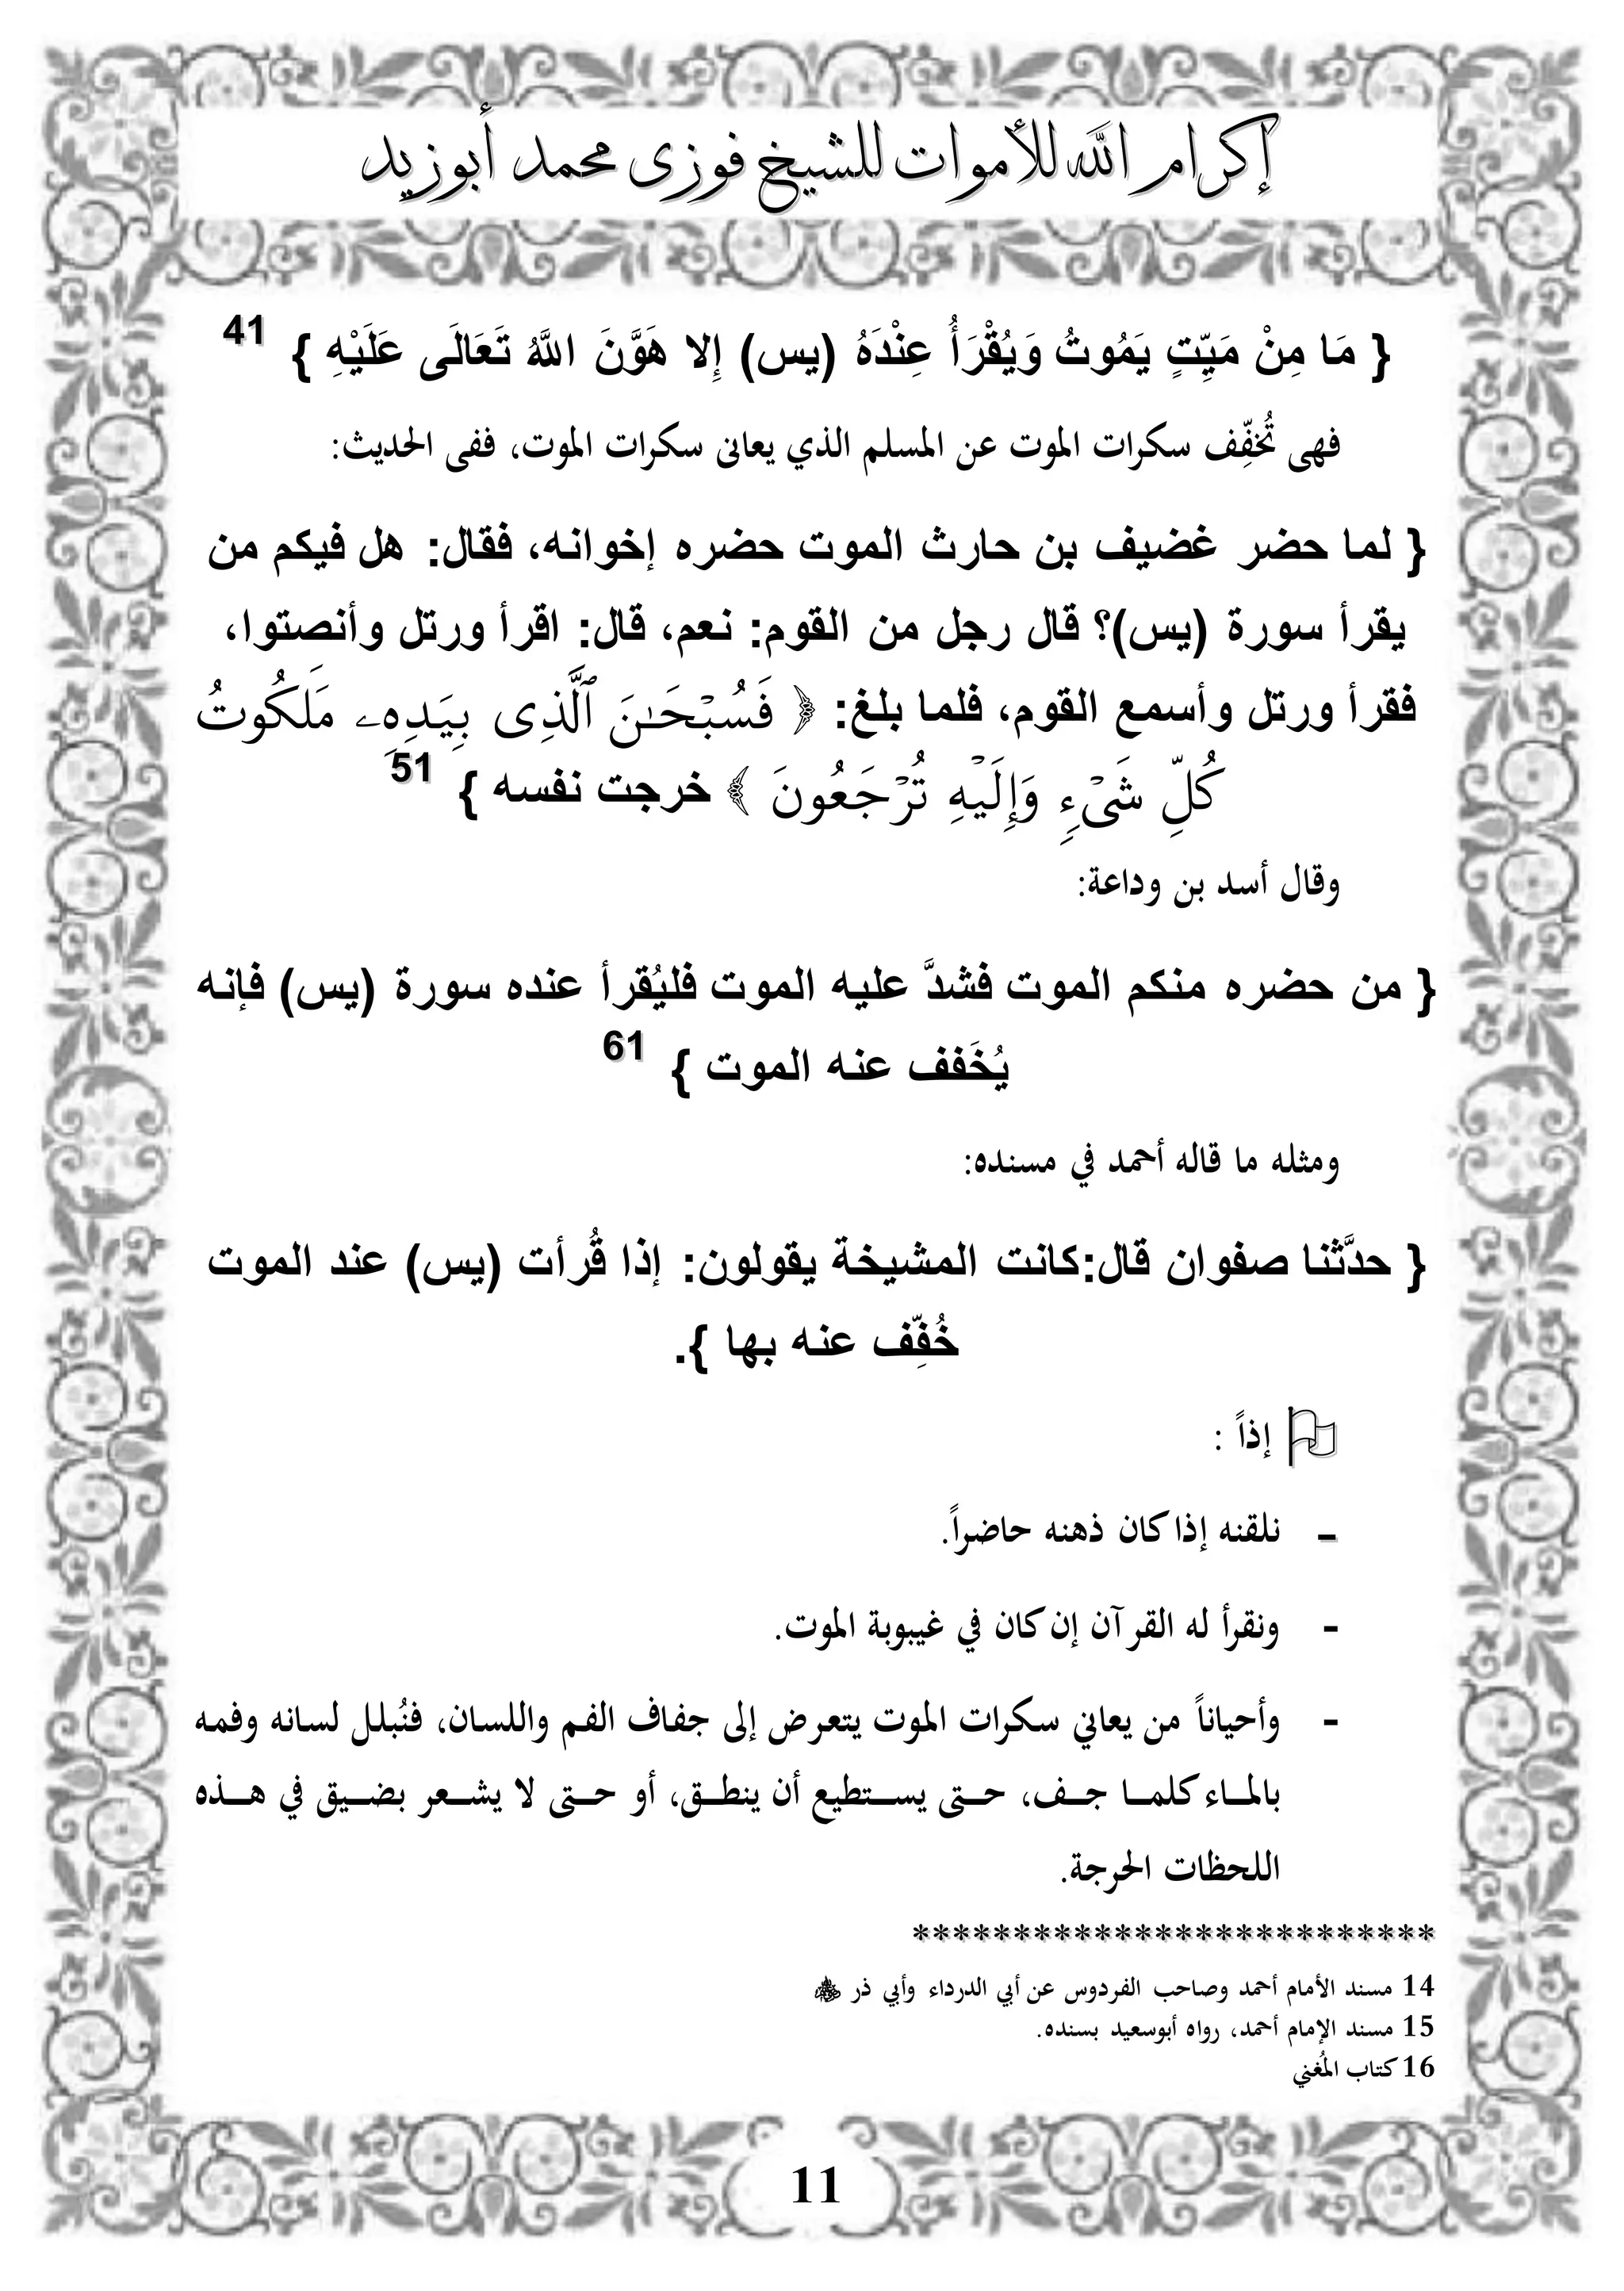 إكرام الله للأموات للشيخ فوزى محمد أبوزيد
{ مَا مِنْ مَيِّتٍ يَمُوتُ وَيُقْرَأُ عِنْدَهُ (يس) إِلا هَوَّنَ اللَّهُ تَعَالَى عَلَيْهِ } 41
فهى تُخَفِّف سكرات الموت عن المسلم الذي يعانى سكرات الموت، ففى الحديث:
{ لما حضر غضيف بن حارث الموت حضره إخوانه، فقال: هل فيكم من
يقرأ سورة (يس)؟ قال رجل من القوم: نعم، قال: اقرأ ورتل وأنصتوا،
فقرأ ورتل وأسمع القوم، فلما بلغ: ﴿ فَسُبْحَـٰنَ ٱلَّذِى بِيَدِهِۦ مَلَكُوتُ
كُلِّ شَىْءٍ وَإِلَيْهِ تُرْجَعُونَ ﴾ خرجت نفسه } 51
وقال أسد بن وداعة:
{ من حضره منكم الموت فشدَّ عليه الموت فليُقرأ عنده سورة (يس) فإنه
يُخَفف عنه الموت } 61
ومثله ما قاله أحمد في مسنده:
{ حدَّثنا صفوان قال:كانت المشيخة يقولون: إذا قُرأت (يس) عند الموت
خُفِّف عنه بها }.
إذاً :
- نلقنه إذا كان ذهنه حاضراً.
- ونقرأ له القرآن إن كان في غيبوبة الموت.
- وأحياناً من يعاني سكرات الموت يتعرض إلى جفاف الفم واللسان، فنُبلل لسانه وفمه
بالماء كلما جف، حتى يستطيع أن ينطق، أو حتى لا يشعر بضيق في هذه
اللحظات الحرجة.
**************************
14 مسند الأمام أحمد وصاحب الفردوس عن أبي الدرداء وأبي ذر
15 مسند الإمام أحمد، رواه أبوسعيد بسنده.
16 كتاب المُغني
11